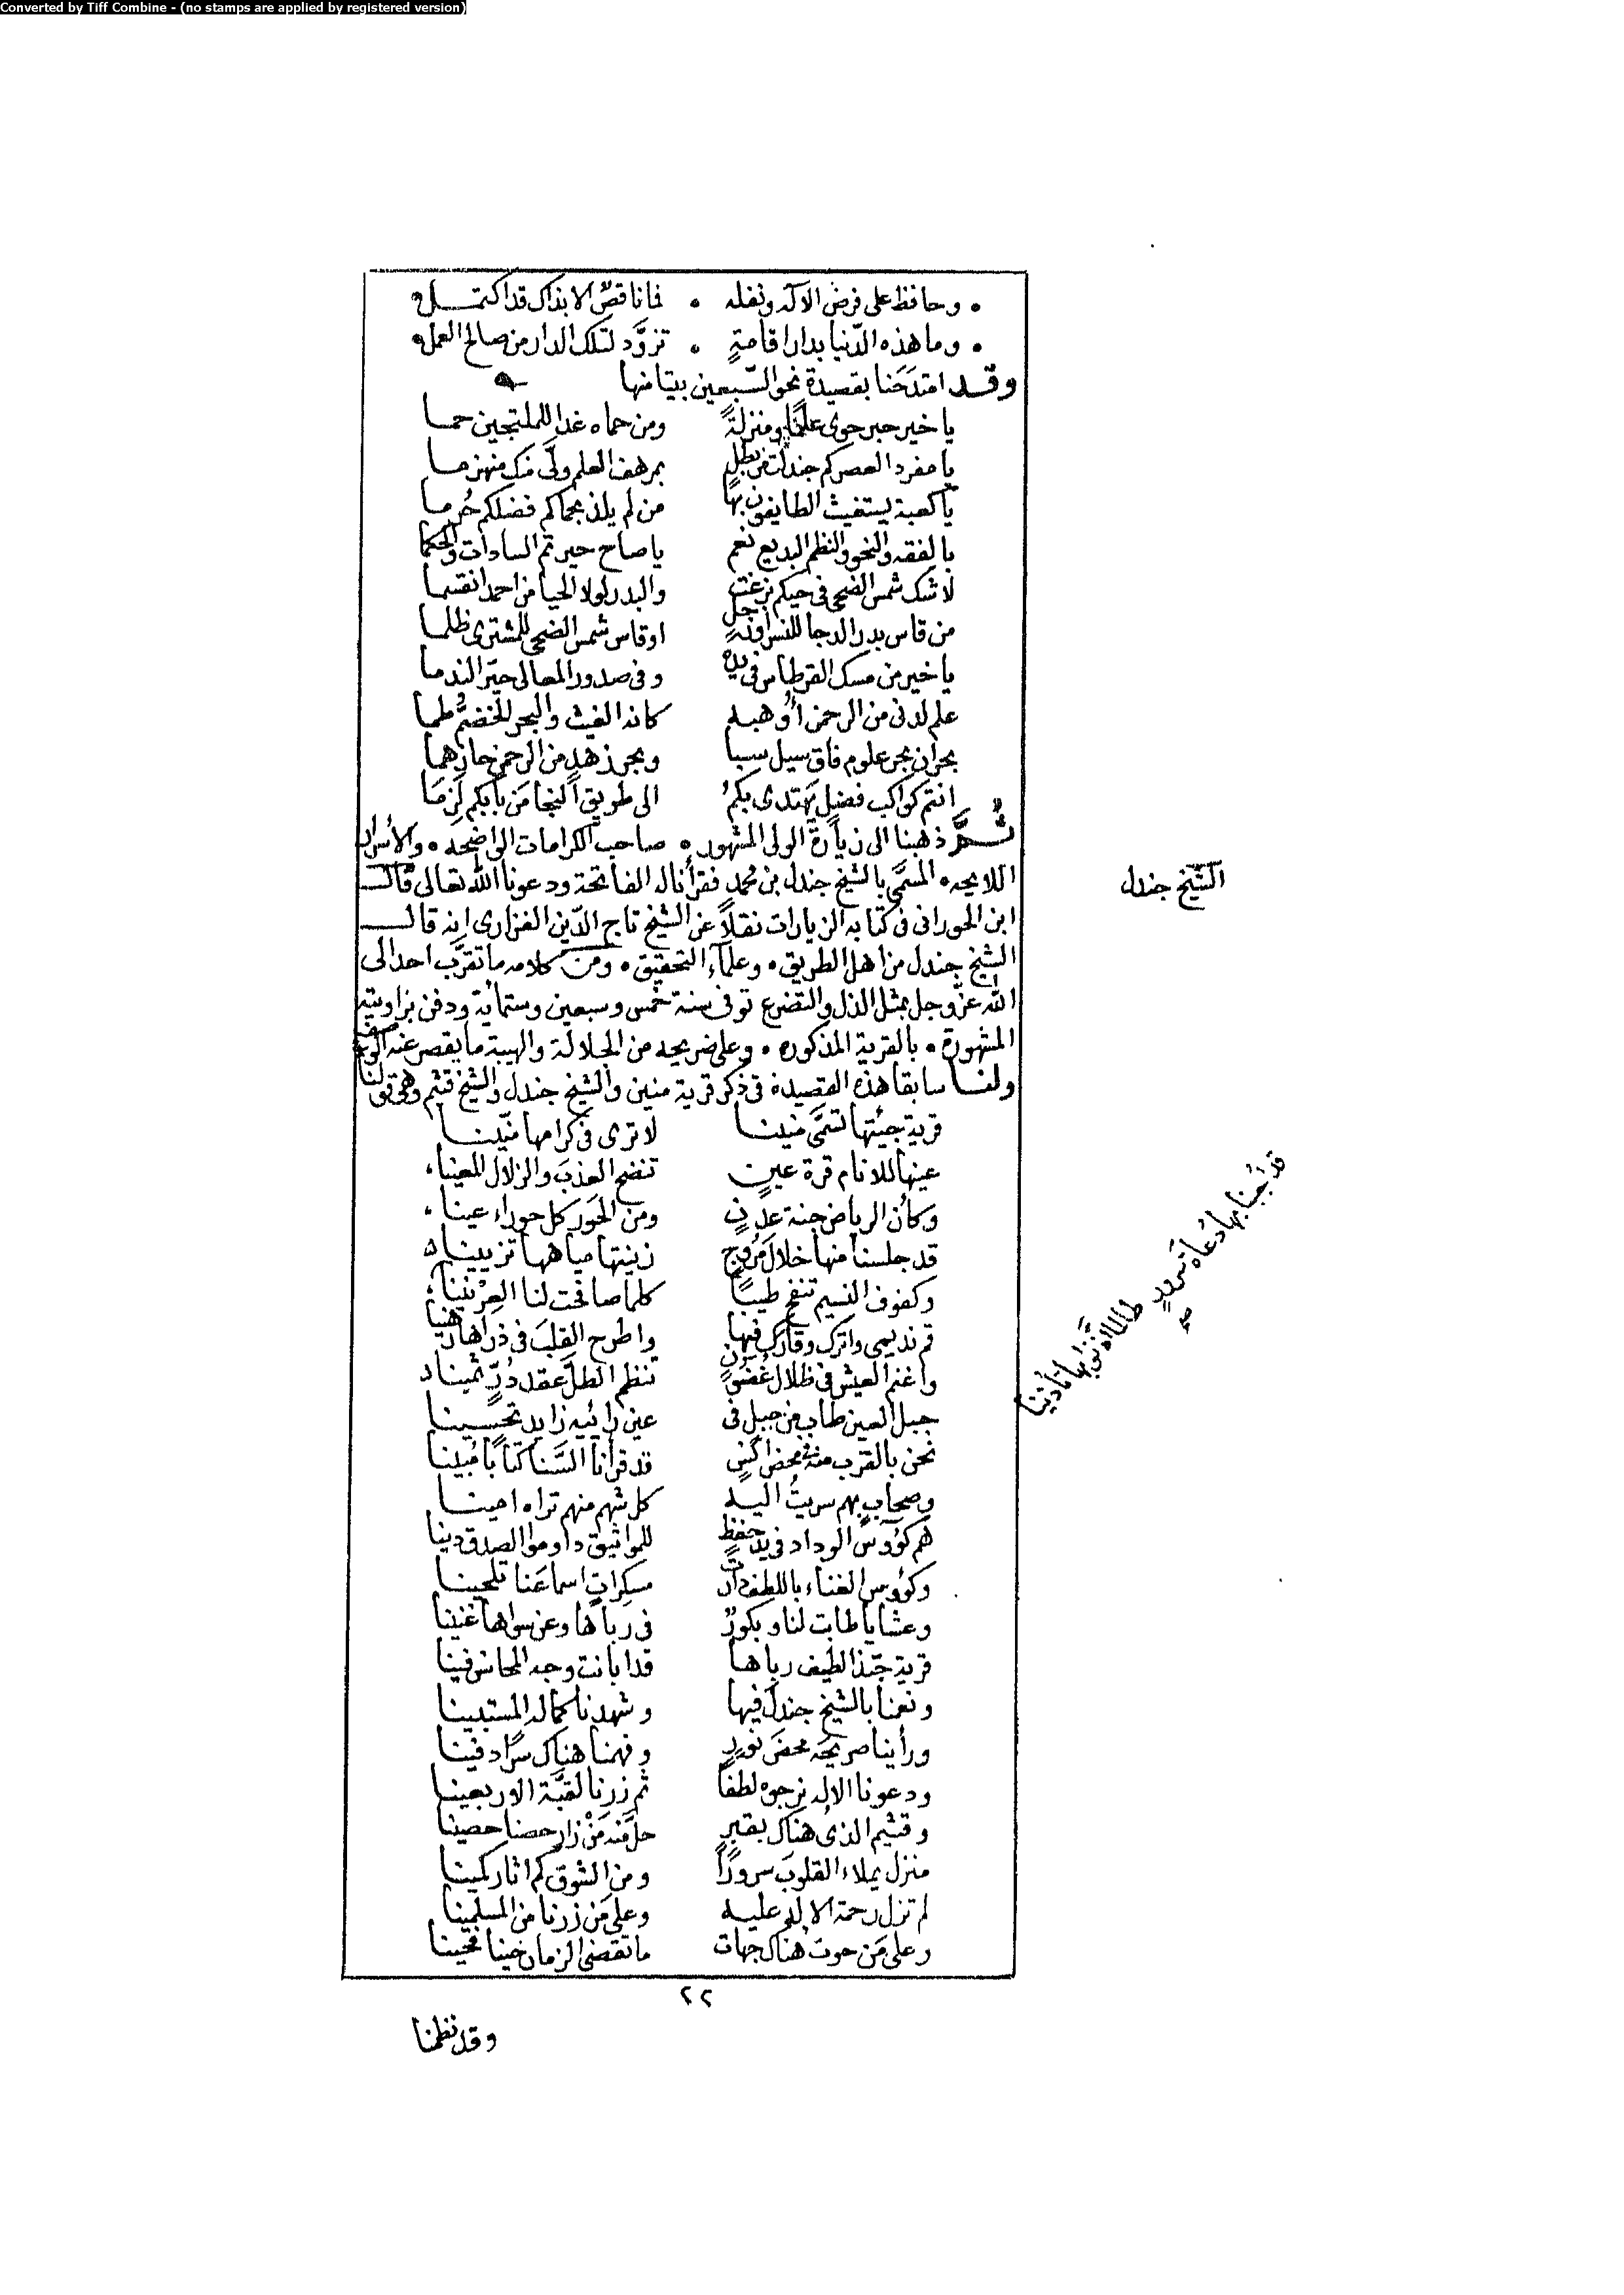 Converted by Tiff Combine - (no stamps are applied by registered version)
• وحافظ على فرض الاله ونفله • فما ناقص الا بذاك قد اكتمل •
• وما هذه الدّنيا بدار اقامةٍ • تزوَّد لتلك الدار من صالح العمل •
وقد امتدَحَنا بقصيدة نحو السّبعين بيتا منها
يا خير حبر حوى علمًا ومنزلةً ومن حماه غدا للملتجين حما
يا مفرد العصر كم جندلت من بطلٍ بمرهف العلم ولَّى منك منهزما
يا كعبة يستغيث الطايفون بها من لم يلذ بحماكم فضلكم حُرما
بالفقه والنحو والنظم البديع نعم يا صاح حيرتم السادات والحكما
لا شك شمس الضحى في حيكم بزغت والبدر لولا الحيا من احمد انقسما
من قاس بدر الدجا للنسر او زحل او قاس شمس الضحى للمشترى ظلما
يا خير من مسك القرطاس في يده وفي صدور المعالى حيّر الندما
علم لدنى من الرحمن أُوهبه كانه الغيث والبحر الخضمّ طما
بحران بحر علوم فاق سيل سبا وبحر زهدٍ من الرحمن حازهما
انتم كواكب فضلٍ يَهتدى بكمُ الى طريق النجا مَن بابكم لَزِمَا
ثمَّ ذهبنا الى زيارة الولى المشهور • صاحب الكرامات الواضحه • والأسرار
اللايحه • المسمَّى بالشيخ جندل بن محمدٍ فقرأنا له الفاتحة ودعونا الله تعالى قال
الشّيخ جندل
ابن الحورانى في كتابه الزيارات نقلاً عن الشيخ تاج الدّين الفزارى انه قال
الشيخ جندل من اهل الطريق • وعلمآء التحقيق • ومن كلامه ما تقرَّب احد الى
الله عزّ وجل بمثل الذل والتضرع توفى سنة خمس وسبعين وستمائة ودفن بزاويته
المشهورة • بالقرية المذكوره • وعلى ضريحه من الجلالة والهيبة ما يقصر عنه الوصف
ولنا سابقا هذه القصيدة في ذكر قرية منين والشيخ جندل والشيخ قثيم وهو قولنا
قرية جئتها تسمَّى منينا لا ترى في كرامها منّينا
عينها للانام قرة عينٍ تنضح العذبَ والزلال المعينا
وكأن الرياض جنة عدنٍ ومن الحَور كل حوراء عينا
قد جلسنا منها خلال مُروجٍ زينتها مياهها تزيينا
وكفوف النسيم تنفح طيبًا كلما صافحت لنا العِرْنينا
قم نديمى واترك وقارك فيها واطرح القلبَ في ذراها رهينا
واغنم العيش في ظلال غُصُونٍ تنظم الطلّ عقد دُرٍّ ثمينا
جبل العين طاب من جبلٍ في عين رائيه زايد تحسينا
نحن بالقرب منه في محض انسٍ قد قرأنا السَّنا كتابًا مُبينا
وصحابٍ بهم سريتُ اليه كل شهم منهم تراه امينا
هم كؤوس الوداد في يد حفظٍ للمواثيق داوموا الصدق دينا
وكؤوس الغناء باللطف دارت مسكراتٍ اسماعَنا تلحينا
وعشايا طابت لنا وبكورٌ في رباها وعن سواها غنينا
قرية حبّذا لطيف رباها قد ابانت وجه المحاسن فينا
ونعمنا بالشيخ جندل فيها وشهدنا كماله المستبينا
ورأينا ضريحَه محضَ نورٍ وفهمنا هناك سرًّا دفينا
ودعونا الاله نرجوه لطفًا ثم زرنا لقبَّة الاربعينا
وقثيم الذى هُناك بقبرٍ حلَّ منه مَنْ زار حصنا حصينا
منزل يملاء القلوبَ سرورًا ومن الشوق كم اثار كمينا
لم تزل رحمة الاله عليه وعلى مَن زرنا من المسلمينا
وعلى مَن حوتْ هناك جهات ما تقضى الزمان حينا فحينا
قد أُجبنا بها دُعاة سرورٍ طالما
صح
٢٢
وقد نظمنا